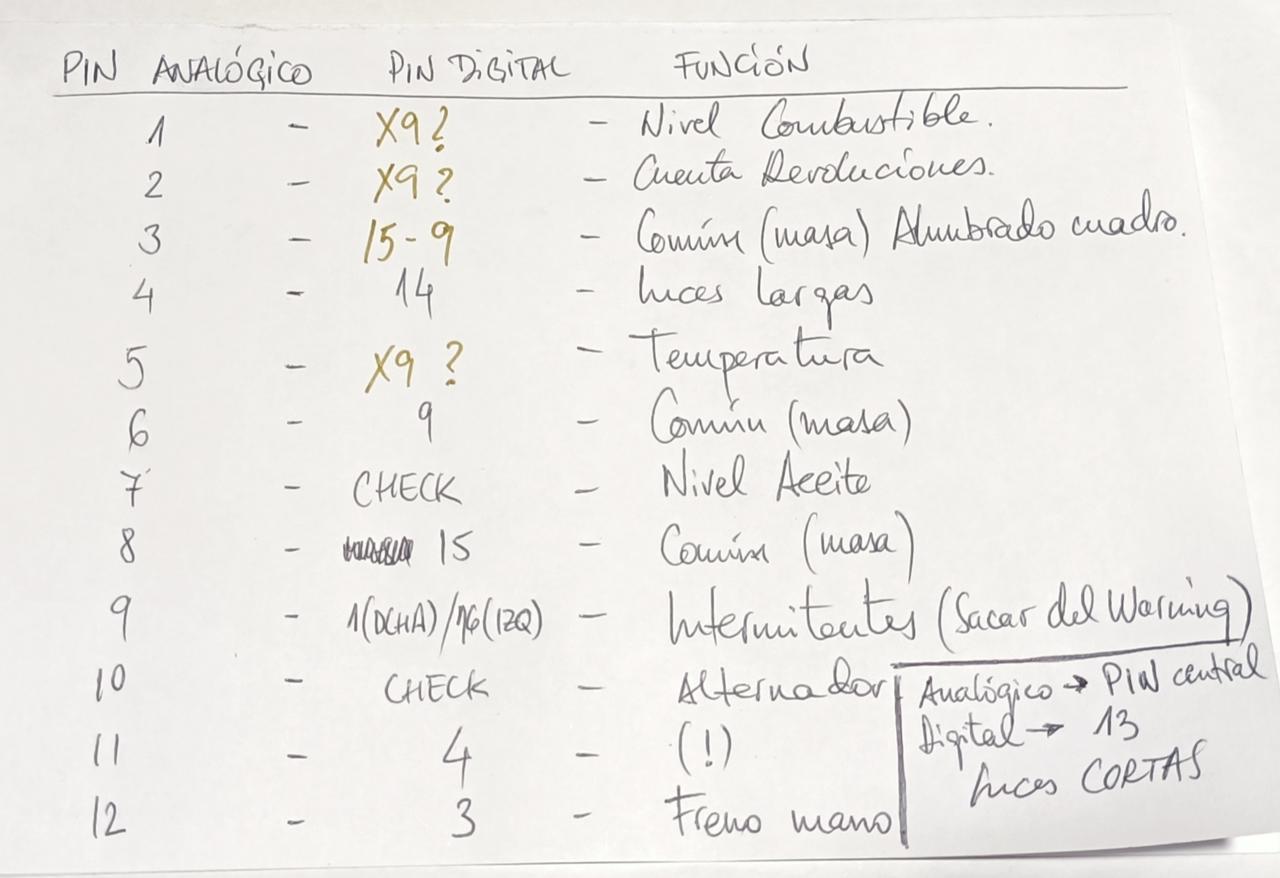 PIN ANALÓGICO PIN DIGITAL FUNCIÓN
1 - X9? - Nivel Combustible.
2 - X9? - Cuenta Revoluciones.
3 - 15-9 - Común (masa) Alumbrado cuadro.
4 - 14 - Luces Largas
5 - X9 ? - Temperatura
6 - 9 - Común (masa)
7 - CHECK - Nivel Aceite
8 - 15 - Común (masa)
9 - 1(DCHA)/16(IZQ) - Intermitentes (Sacar del Warning)
10 - CHECK - Alternador
11 - 4 - (!)
12 - 3 - Freno mano
Analógico → PIN central
Digital → 13
Luces CORTAS